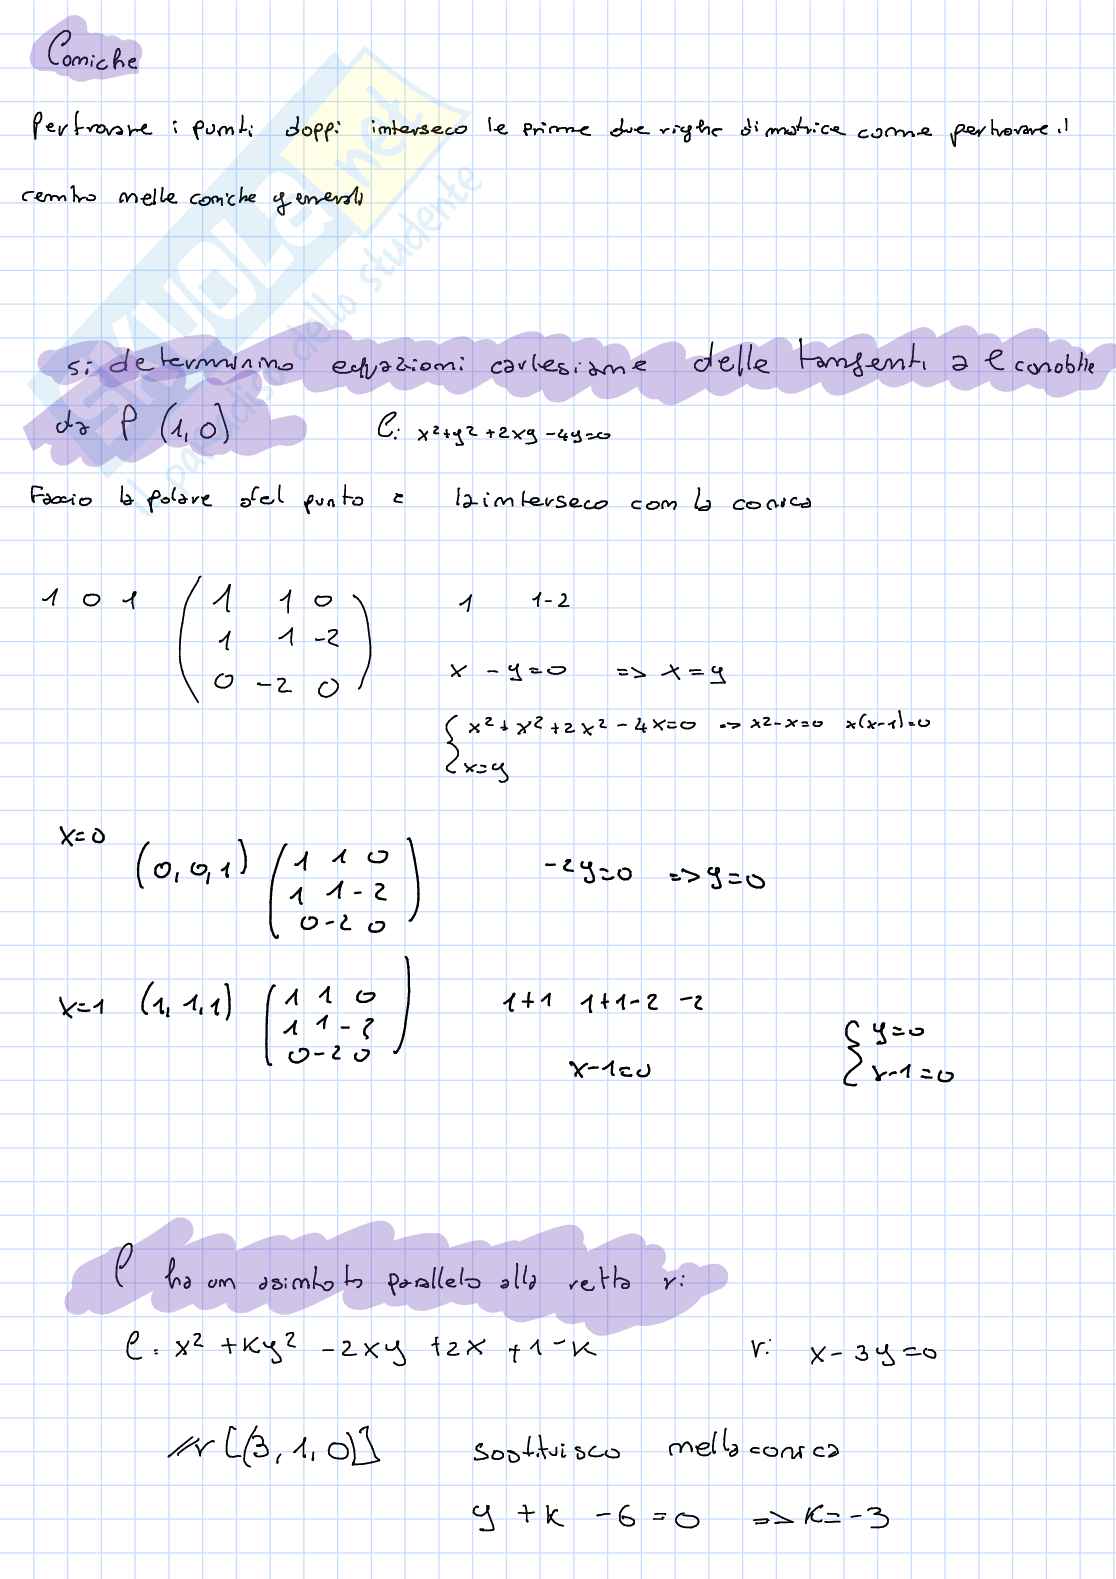 Coniche
Per trovare i punti doppi interseco le prime due righe di matrice come per trovare il
centro nelle coniche generali
si determinino equazioni cartesiane delle tangenti a C conobtte
da P (1,0) C: x²+y²+2xy-4y=0
Faccio la polare del punto e la interseco con la conica
1 0 1 ( 1 1 0 ) 1 1-2
1 1 -2
x - y=0 => x=y
0 -2 0
{ x²+x²+2x²-4x=0 => x2-x=0 x(x-1)=0
x=y
x=0
(0,0,1) ( 1 1 0 ) -2y=0 => y=0
1 1-2
0-2 0
x=1 (1,1,1) ( 1 1 0 ) 1+1 1+1-2 -2
1 1-2 { y=0
0-2 0 x-1=0 x-1=0
C ha un asintoto parallelo alla retta r:
C: x² +Ky² -2xy +2x +1-K r: x-3y=0
//r [(3,1,0)] sostituisco nella conica
y +K -6=0 => K=-3
SKUOLA.net
dello studente